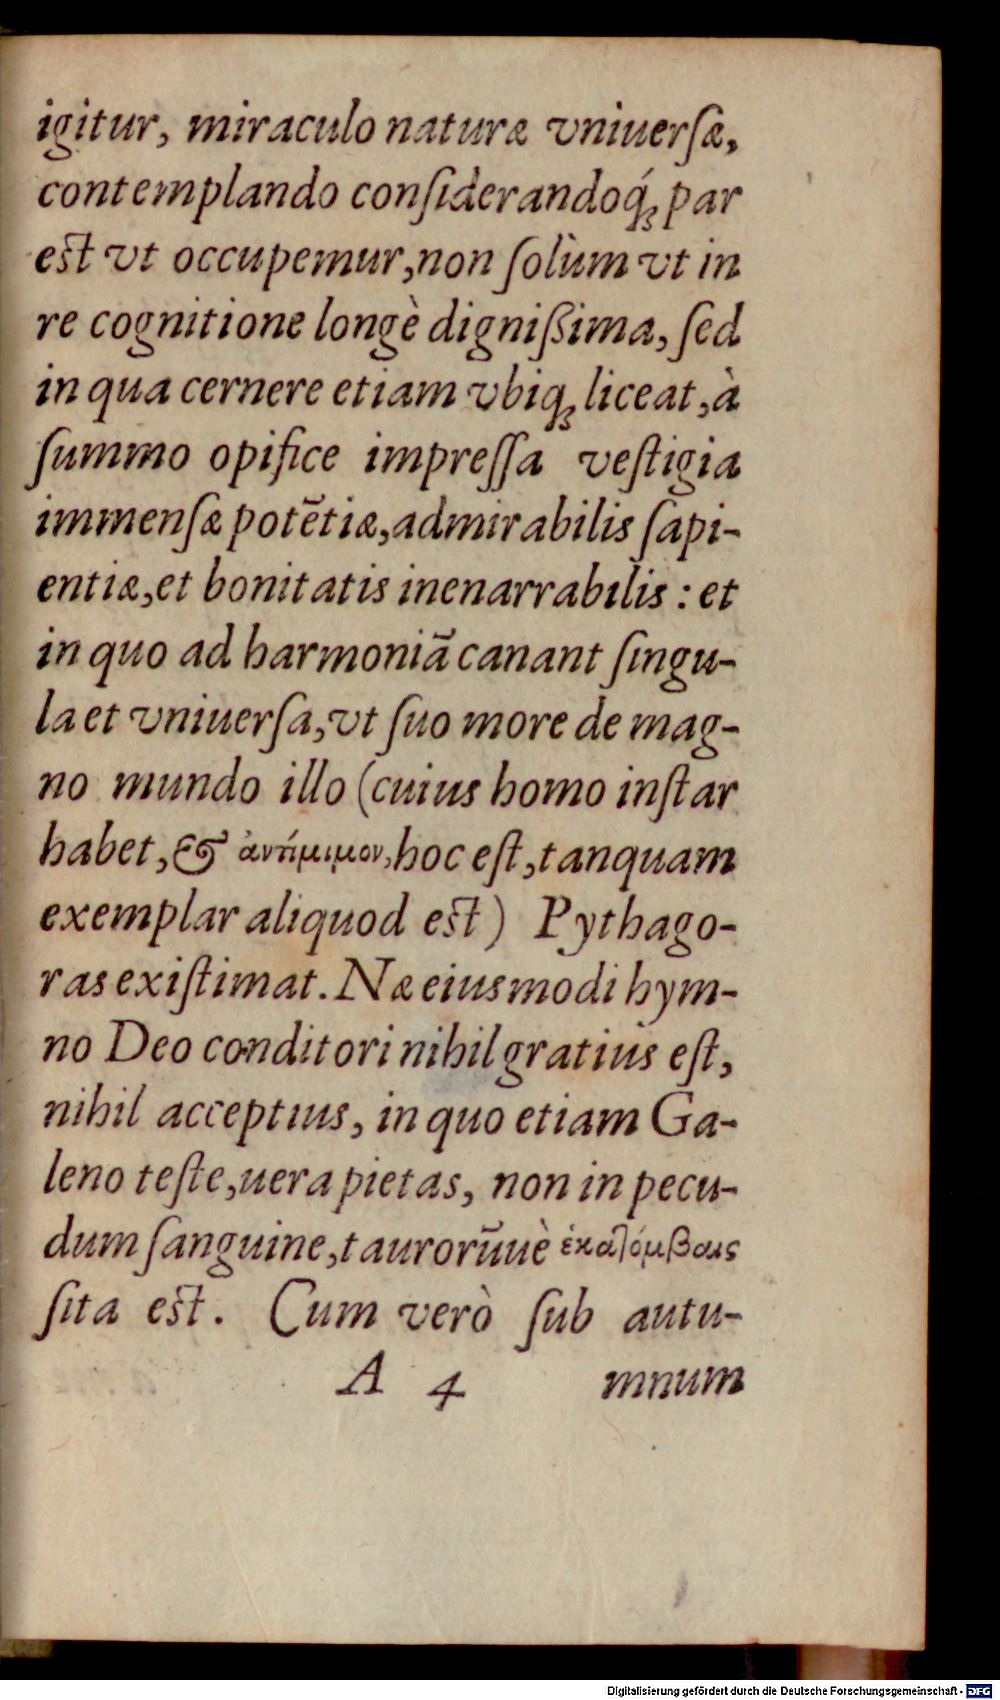 igitur, miraculo naturæ vniuerſæ,
contemplando conſiderandoq́ꝫ par
est vt occupemur, non ſolùm vt in
re cognitione longè digniſſima, ſed
in qua cernere etiam vbiqꝫ liceat, à
ſummo opifice impreſſa veſtigia
immenſæ potẽtiæ, admirabilis ſapi-
entiæ, et bonitatis inenarrabilis : et
in quo ad harmoniã canant ſingu-
la et vniuerſa, vt ſuo more de mag-
no mundo illo (cuius homo inſtar
habet, & ἀντίμιμον, hoc eſt, tanquam
exemplar aliquod est) Pythago-
ras exiſtimat. Næ eiusmodi hym-
no Deo conditori nihil gratius eſt,
nihil acceptius, in quo etiam Ga-
leno teſte, uera pietas, non in pecu-
dum ſanguine, taurorũuè ἑκατόμβαις
ſita est. Cum verò ſub autu-
A 4 mnum
Digitalisierung gefördert durch die Deutsche Forschungsgemeinschaft - DFG